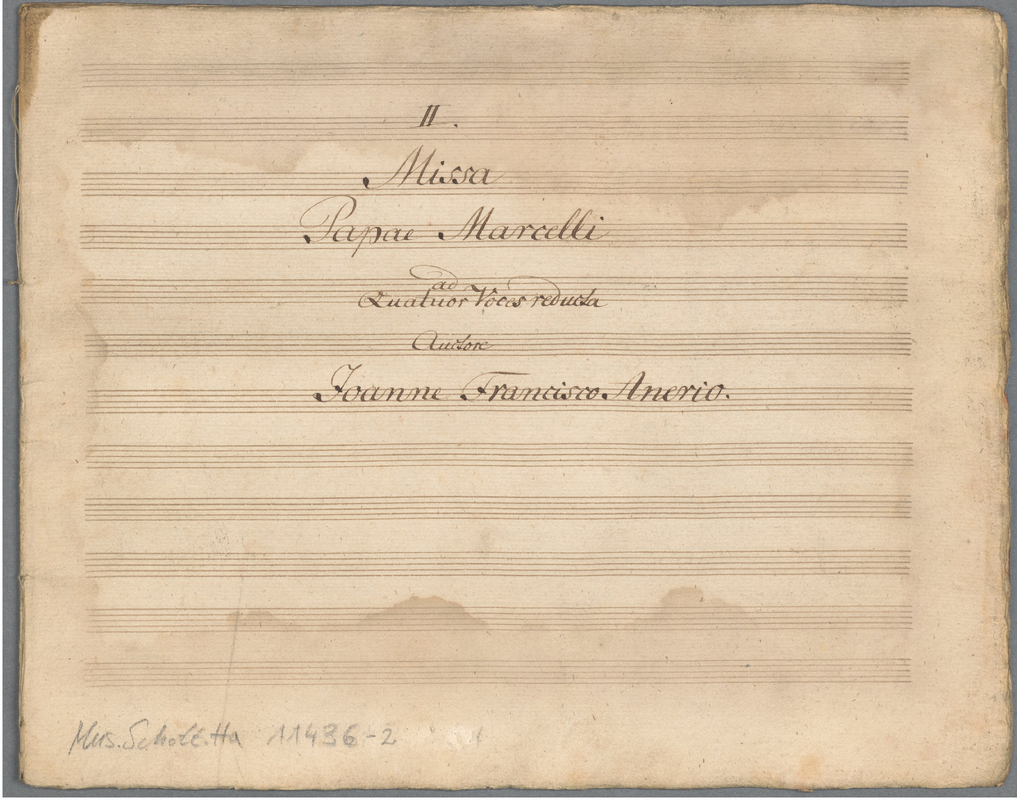 II.
Missa
Papae Marcelli
ad
Quatuor Voces reducta
Auctore
Joanne Francisco Anerio.
Mus. Schott. Ha 11436-2